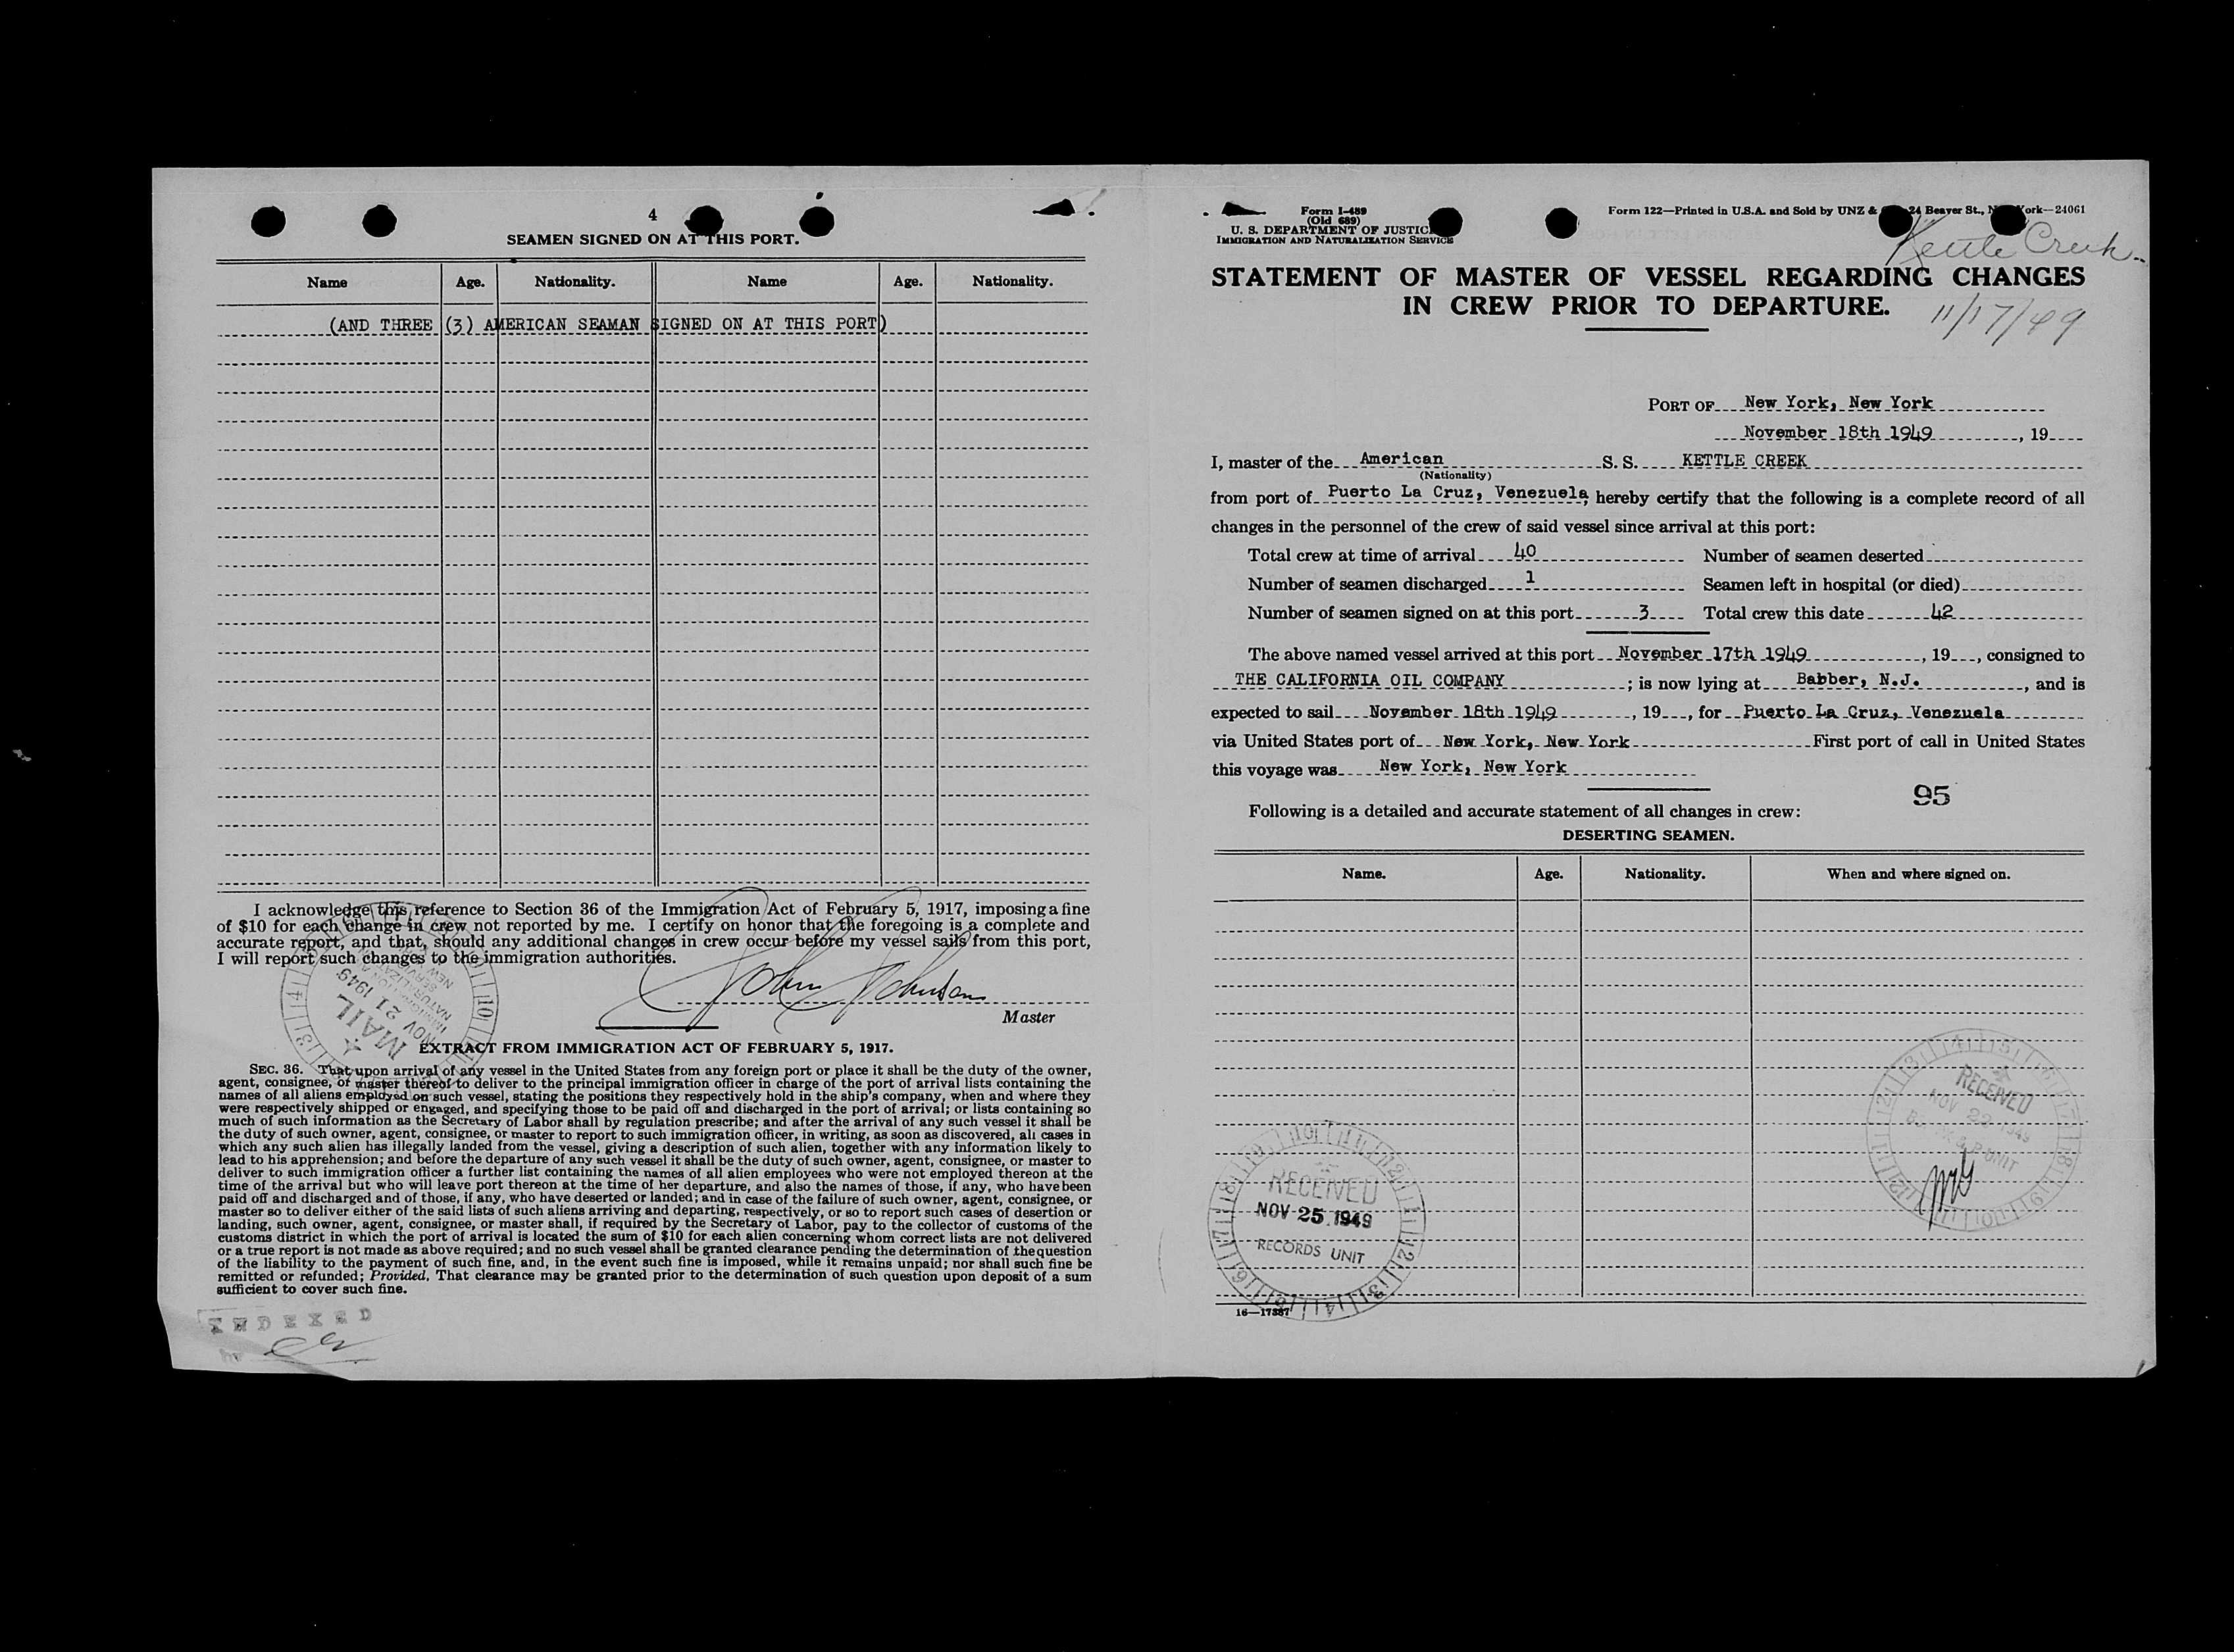 4
SEAMEN SIGNED ON AT THIS PORT.
Name Age. Nationality. Name Age. Nationality.
(AND THREE (3) AMERICAN SEAMAN SIGNED ON AT THIS PORT)
I acknowledge this reference to Section 36 of the Immigration Act of February 5, 1917, imposing a fine
of $10 for each change in crew not reported by me. I certify on honor that the foregoing is a complete and
accurate report, and that, should any additional changes in crew occur before my vessel sails from this port,
I will report such changes to the immigration authorities.
John Johnson
Master
MAIL
NOV 21 1949
EXTRACT FROM IMMIGRATION ACT OF FEBRUARY 5, 1917.
SEC. 36. That upon arrival of any vessel in the United States from any foreign port or place it shall be the duty of the owner,
agent, consignee, or master thereof to deliver to the principal immigration officer in charge of the port of arrival lists containing the
names of all aliens employed on such vessel, stating the positions they respectively hold in the ship's company, when and where they
were respectively shipped or engaged, and specifying those to be paid off and discharged in the port of arrival; or lists containing so
much of such information as the Secretary of Labor shall by regulation prescribe; and after the arrival of any such vessel it shall be
the duty of such owner, agent, consignee, or master to report to such immigration officer, in writing, as soon as discovered, all cases in
which any such alien has illegally landed from the vessel, giving a description of such alien, together with any information likely to
lead to his apprehension; and before the departure of any such vessel it shall be the duty of such owner, agent, consignee, or master to
deliver to such immigration officer a further list containing the names of all alien employees who were not employed thereon at the
time of the arrival but who will leave port thereon at the time of her departure, and also the names of those, if any, who have been
paid off and discharged and of those, if any, who have deserted or landed; and in case of the failure of such owner, agent, consignee, or
master so to deliver either of the said lists of such aliens arriving and departing, respectively, or so to report such cases of desertion or
landing, such owner, agent, consignee, or master shall, if required by the Secretary of Labor, pay to the collector of customs of the
customs district in which the port of arrival is located the sum of $10 for each alien concerning whom correct lists are not delivered
or a true report is not made as above required; and no such vessel shall be granted clearance pending the determination of the question
of the liability to the payment of such fine, and, in the event such fine is imposed, while it remains unpaid; nor shall such fine be
remitted or refunded; Provided, That clearance may be granted prior to the determination of such question upon deposit of a sum
sufficient to cover such fine.
INDEXED
by
Form I-489
(Old 689)
U. S. DEPARTMENT OF JUSTIC
IMMIGRATION AND NATURALIZATION SERVICE
Form 122—Printed in U.S.A. and Sold by UNZ & 24 Beaver St., N York—24061
Kettle Creek
STATEMENT OF MASTER OF VESSEL REGARDING CHANGES
IN CREW PRIOR TO DEPARTURE.
11/17/49
PORT OF New York, New York
November 18th 1949, 19
I, master of the American S. S. KETTLE CREEK
(Nationality)
from port of Puerto La Cruz, Venezuela, hereby certify that the following is a complete record of all
changes in the personnel of the crew of said vessel since arrival at this port:
Total crew at time of arrival 40 Number of seamen deserted
Number of seamen discharged 1 Seamen left in hospital (or died)
Number of seamen signed on at this port 3 Total crew this date 42
The above named vessel arrived at this port November 17th 1949, 19, consigned to
THE CALIFORNIA OIL COMPANY; is now lying at Babber, N.J., and is
expected to sail November 18th 1949, 19, for Puerto La Cruz, Venezuela
via United States port of New York, New York First port of call in United States
this voyage was New York, New York
95
Following is a detailed and accurate statement of all changes in crew:
DESERTING SEAMEN.
Name. Age. Nationality. When and where signed on.
RECEIVED
NOV 22 1949
RECEIVED
NOV 25 1949
RECORDS UNIT
16—17387